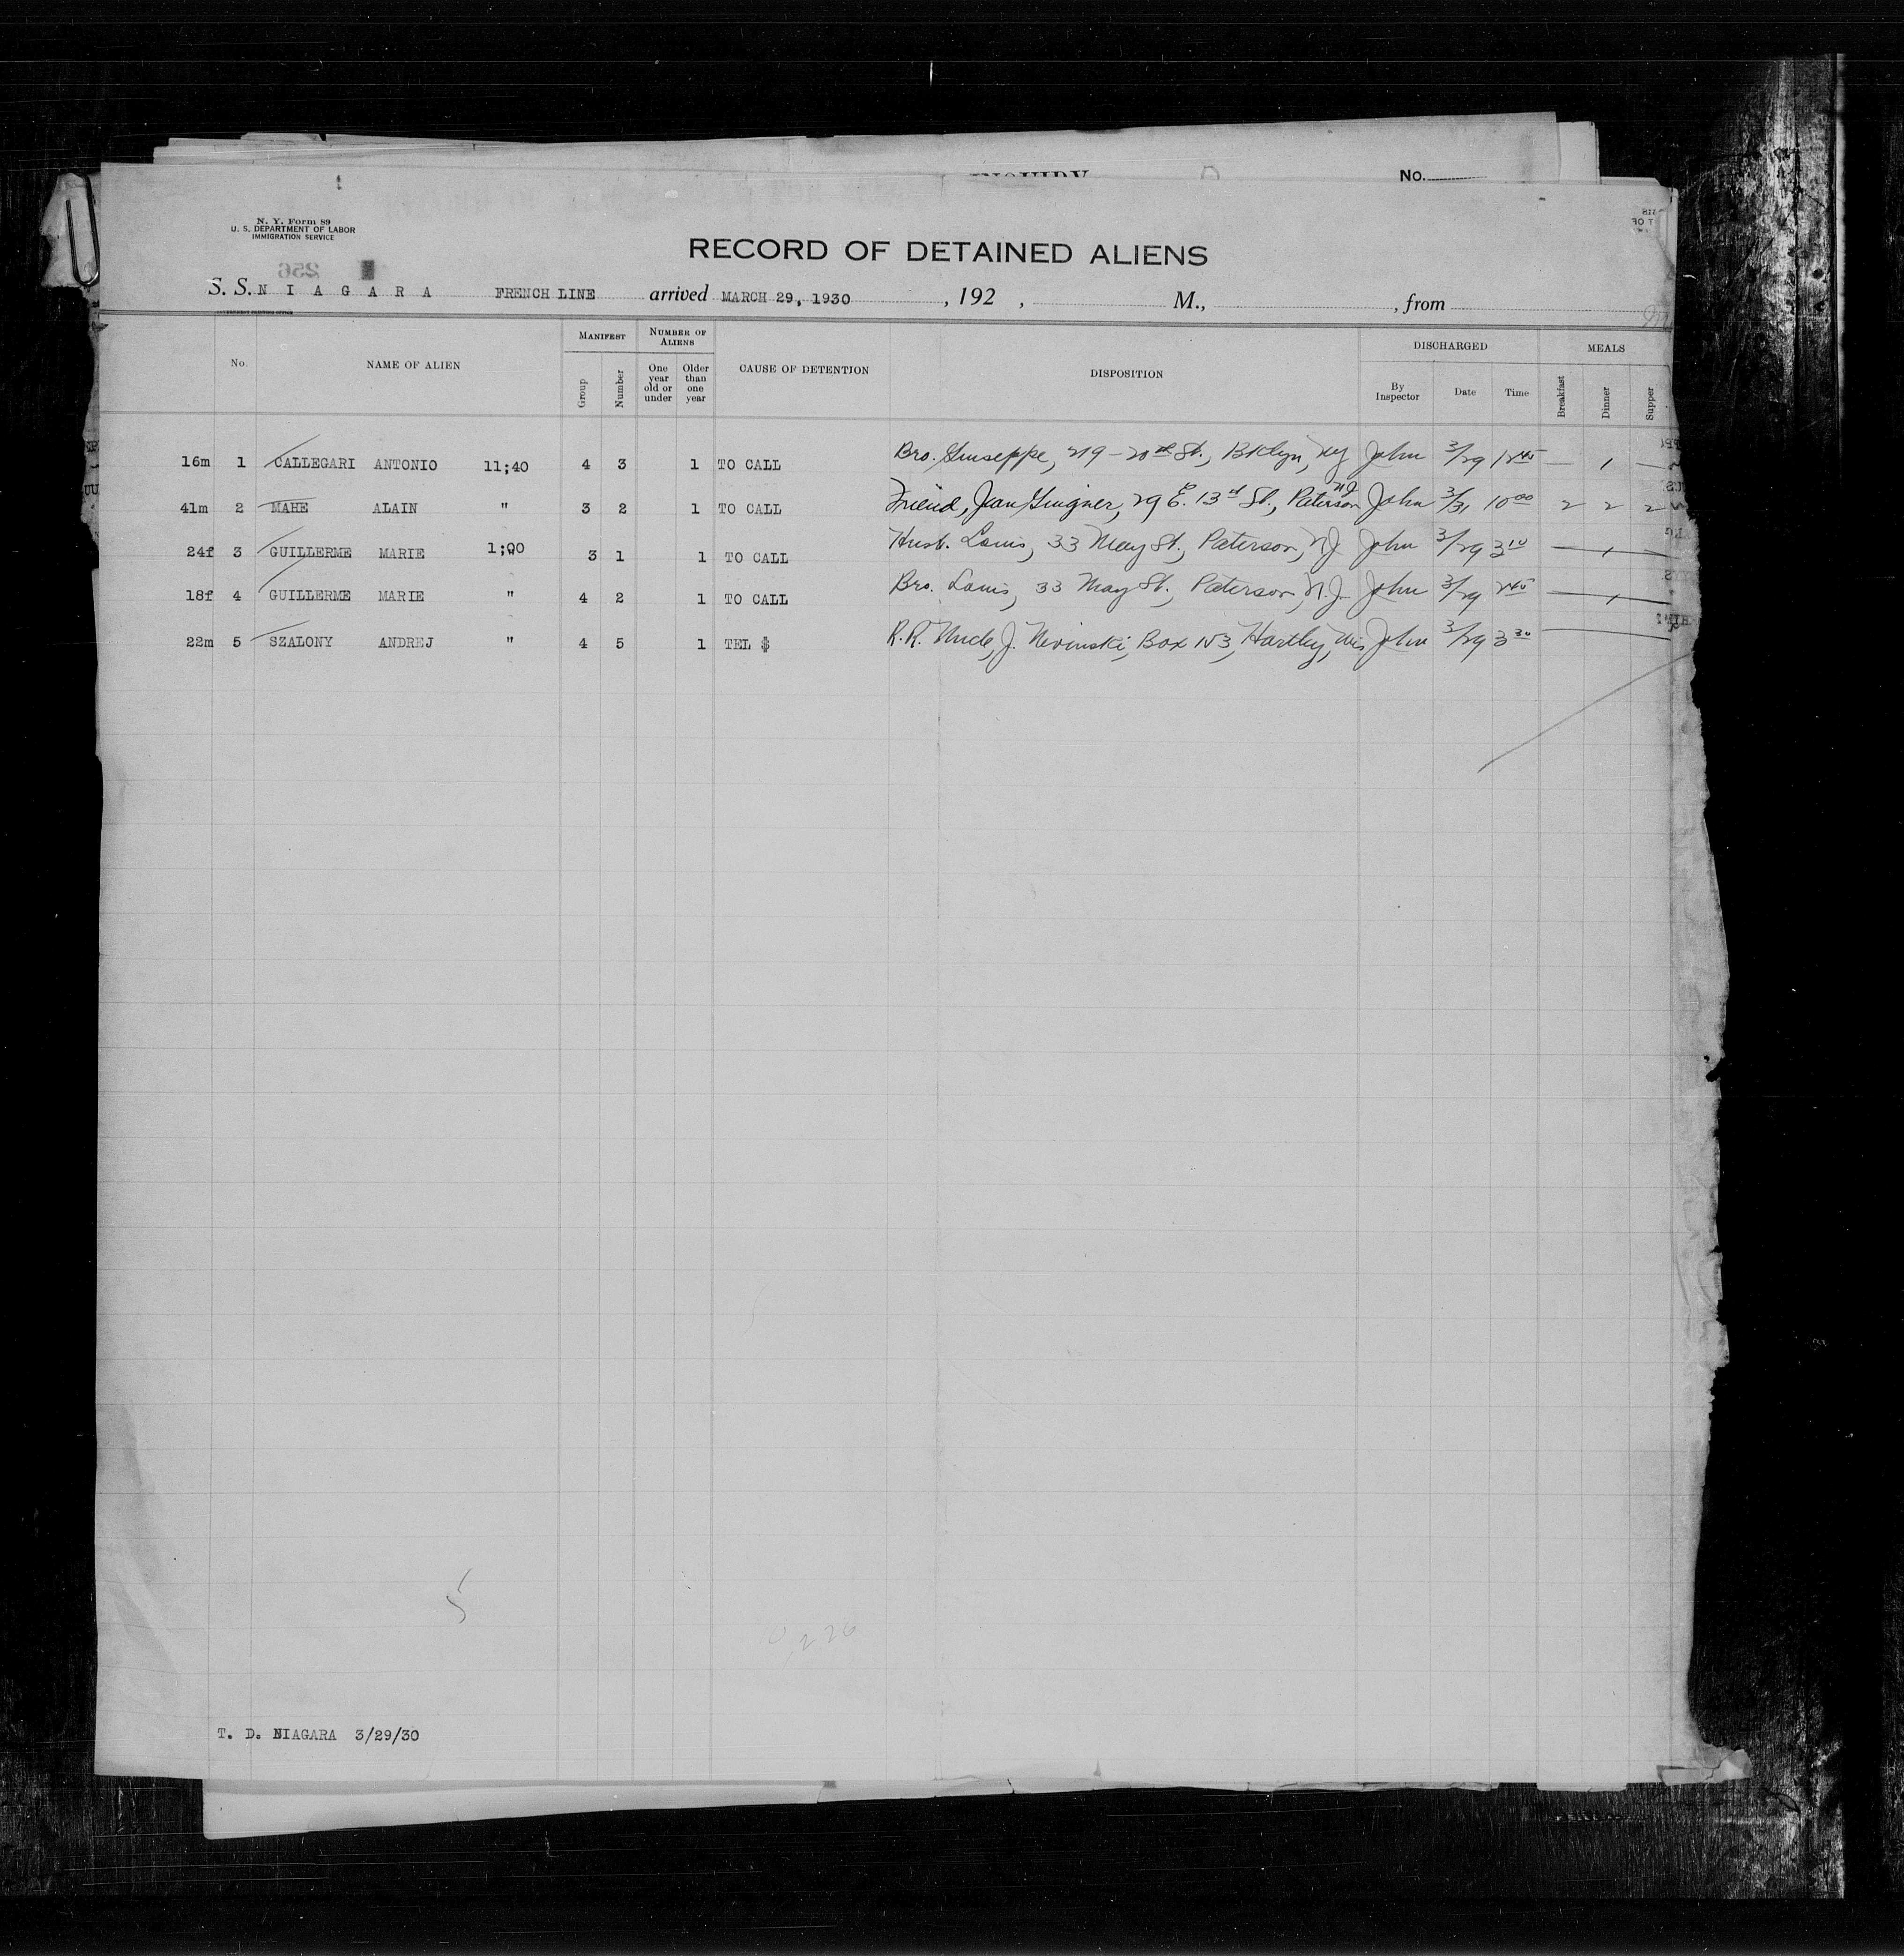 No.
N. Y. Form 89
U. S. DEPARTMENT OF LABOR
IMMIGRATION SERVICE
RECORD OF DETAINED ALIENS
256
S. S. N I A G A R A FRENCH LINE arrived MARCH 29, 1930 , 192 , M., , from
No. NAME OF ALIEN MANIFEST Group Number NUMBER OF ALIENS One year old or under Older than one year CAUSE OF DETENTION DISPOSITION DISCHARGED By Inspector Date Time MEALS Breakfast Dinner Supper
16m 1 CALLEGARI ANTONIO 11;40 4 3 1 TO CALL Bro. Giuseppe, 219 - 20th St., Bklyn, NY John 3/29 12 45 — 1 —
41m 2 MAHE ALAIN " 3 2 1 TO CALL Friend, Jean 29 E. 13rd St., Paterson NJ John 3/31 10 00 2 2 2
24f 3 GUILLERME MARIE 1;00 3 1 1 TO CALL Husb. Louis, 33 May St., Paterson, NJ John 3/29 3 10 — 1 —
18f 4 GUILLERME MARIE " 4 2 1 TO CALL Bro. Louis, 33 May St., Paterson, N.J. John 3/29 2 45 — 1 —
22m 5 SZALONY ANDREJ " 4 5 1 TEL $ R.R. Uncle, J. Nevinski, Box 123, Hartley, Wis John 3/29 3 30 —
5
T. D. NIAGARA 3/29/30